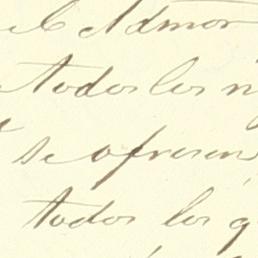 el Admor
todos los n
se ofrecen
todos los q